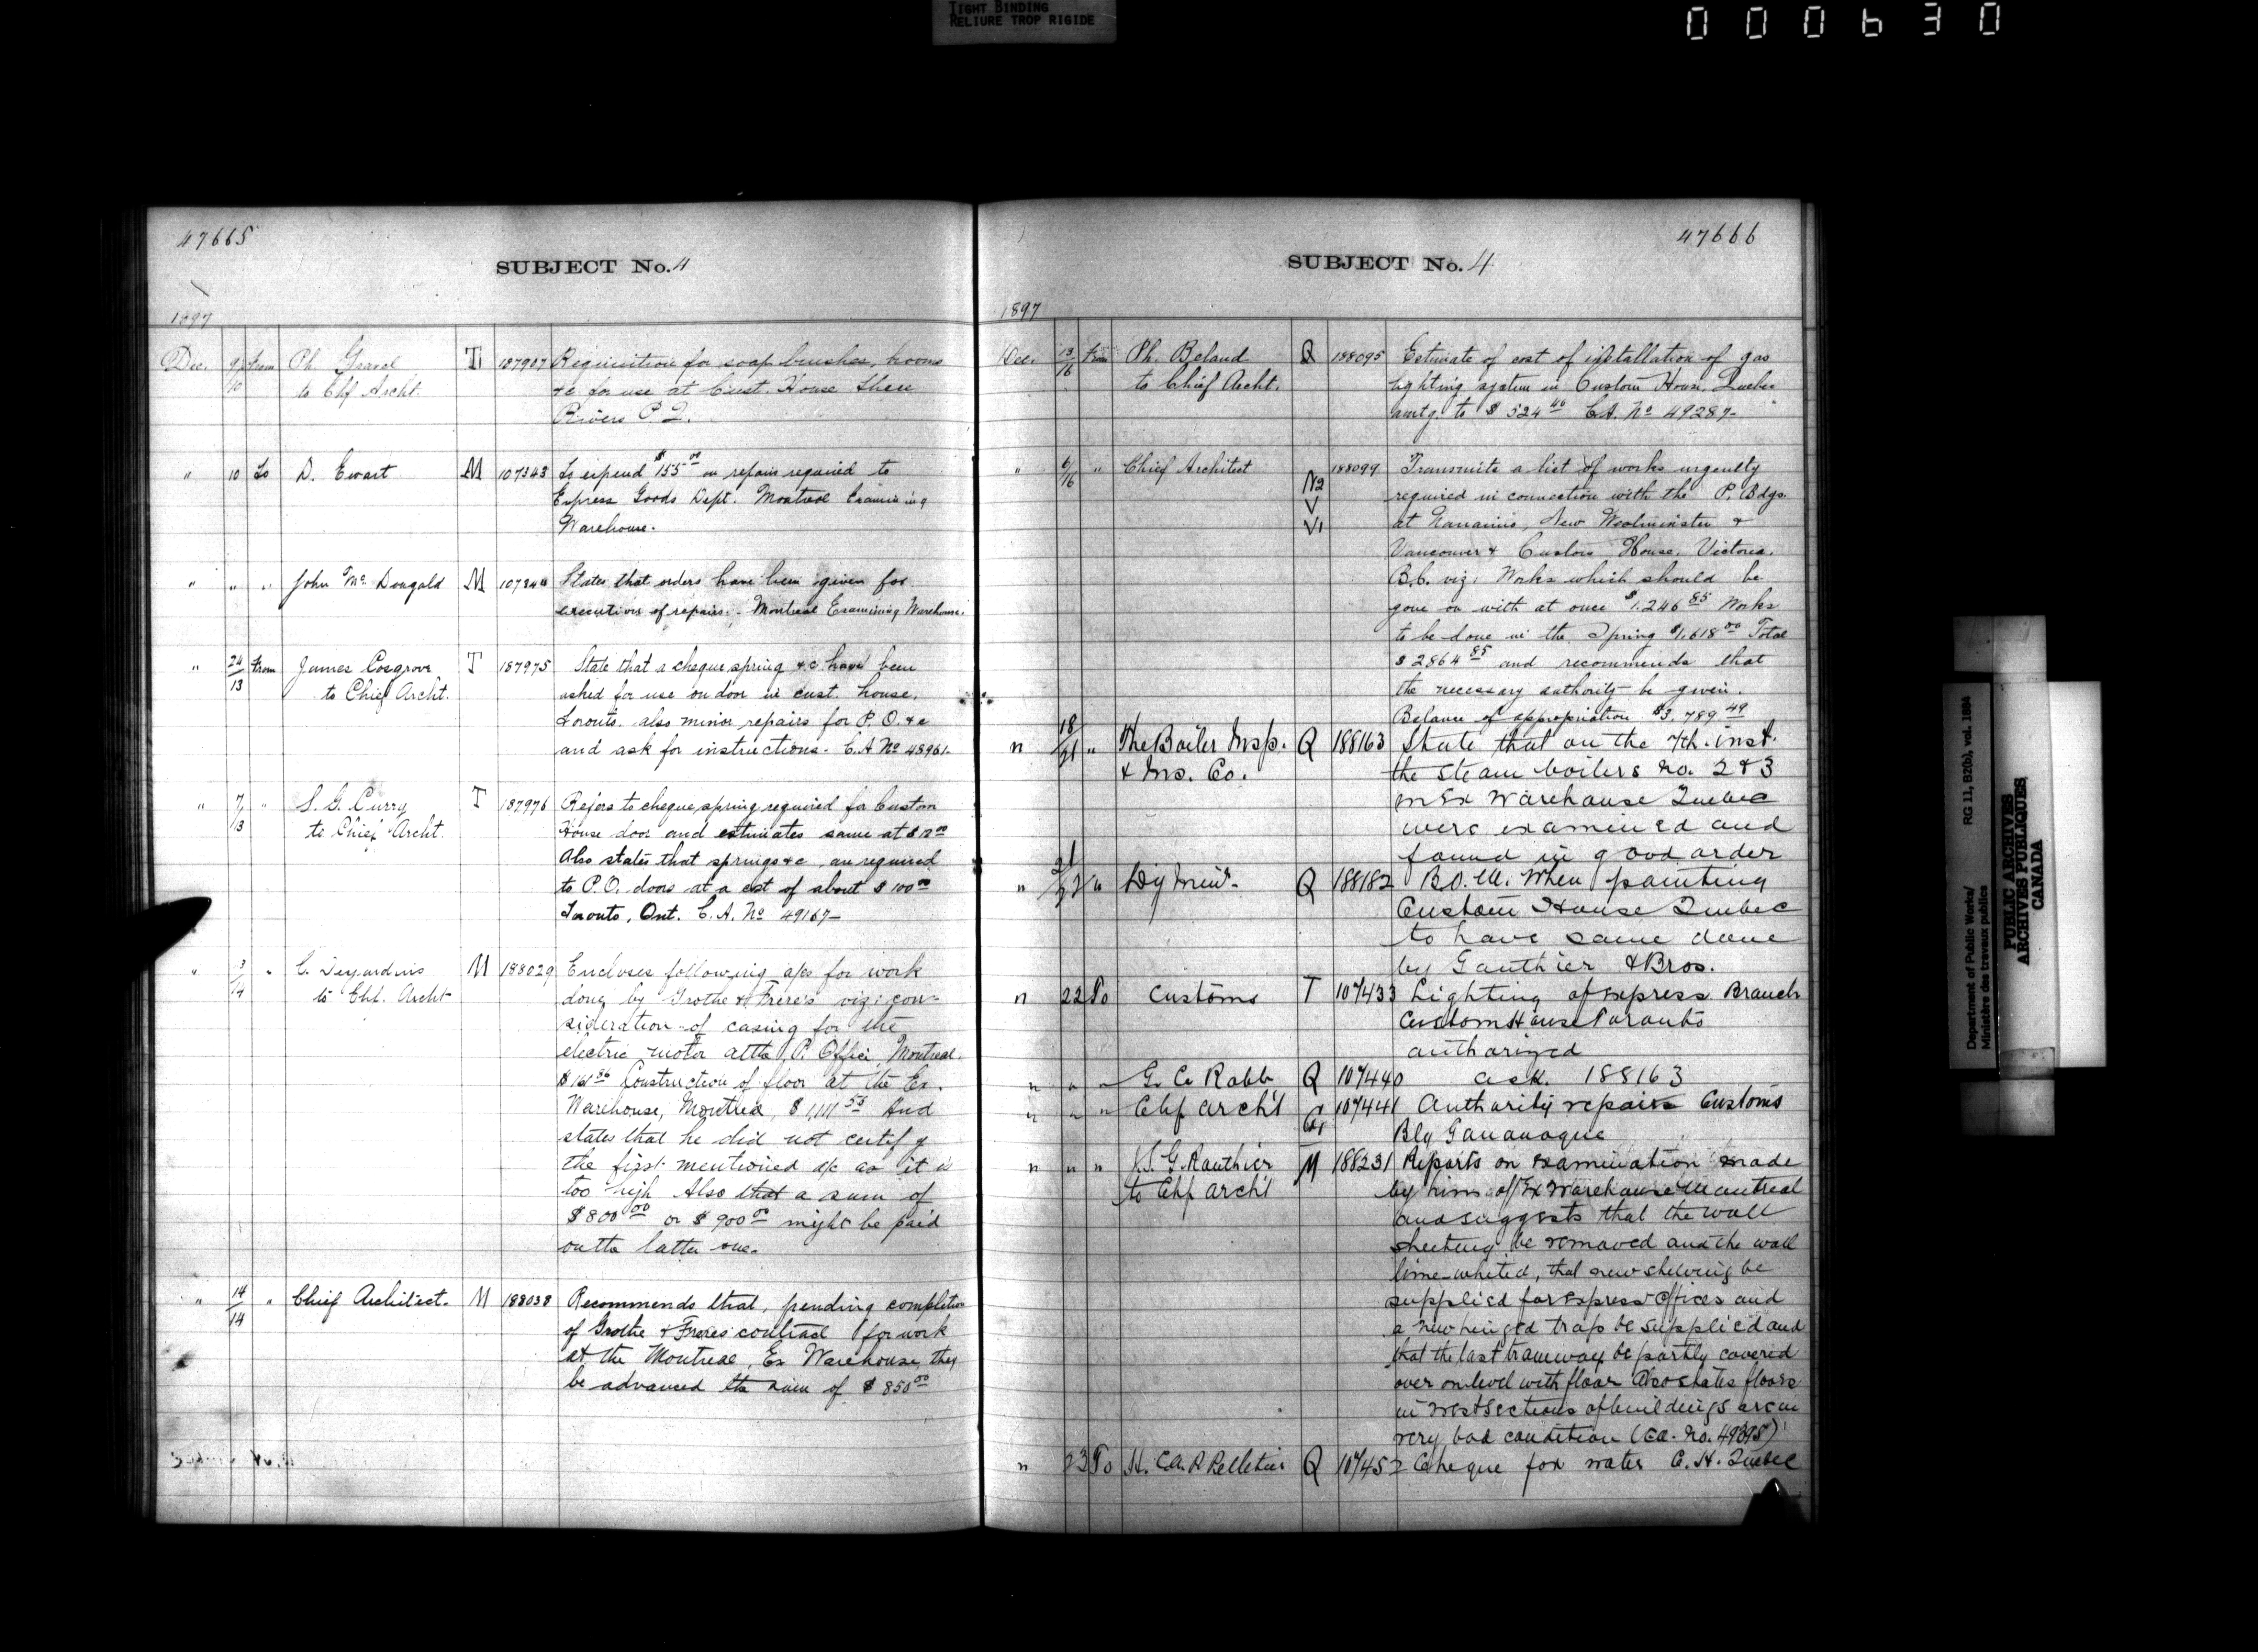 TIGHT BINDING
RELIURE TROP RIGIDE
000630
47665
SUBJECT No. 4
1897
Dec. 9/10 from Ph. Gravel T 187907 Requisition for soap brushes, brooms
to Chf Archt. &c for use at Cust. House Three
Rivers P.Q.
" 10 To D. Ewart M 107343 To expend $155.00 on repairs required to
Express Goods Dept. Montreal Examining
Warehouse.
" " " John McDougald M 107344 States that orders have been given for
execution of repairs. Montreal Examining Warehouse.
" 24/13 from James Cosgrove T 187975 State that a cheque spring &c have been
to Chief Archt. asked for use on door in cust. house,
Toronto. also minor repairs for P.O. &c
and ask for instructions. C.A No 48961.
" 7/13 " S. G. Curry T 187976 Refers to cheque spring required for Custom
to Chief Archt. House door and estimates same at $12.00
Also states that springs &c are required
to P.O. doors at a cost of about $100.00
Toronto, Ont. C.A. No 49167
" 3/14 " C. Desjardins M 188029 Encloses following a/cs for work
to Chf. Archt done by Grothe & Frere's viz: con-
sideration of casing for the
electric motor at the P. Office, Montreal.
$161.86 Construction of floor at the Ex.
Warehouse, Montreal, $1,111.55 And
states that he did not certify
the first mentioned a/c as it is
too high Also that a sum of
$800.00 or $900.00 might be paid
on the latter one.
" 14/14 " Chief Architect. M 188038 Recommends that, pending completion
of Grothe & Freres contract for work
at the Montreal, Ex Warehouse, they
be advanced the sum of $850.00
47666
SUBJECT No. 4
1897
Dec. 13/16 from Ph. Beland Q 188095 Estimate of cost of installation of gas
to Chief Archt. lighting system in Custom House, Quebec
amtg. to $524.46 C.A. No 49287
" 6/16 " Chief Architect 188099 Transmits a list of works urgently
N2 required in connection with the P. Bdgs.
V at Nanaimo, New Westminster &
V1 Vancouver & Custom House, Victoria,
B.C. viz: Works which should be
gone on with at once $1,246.85 Works
to be done in the Spring $1,618.00 Total
$2864.85 and recommends that
the necessary authority be given.
Balance of appropriation $3,789.49
" 18/21 " The Boiler Insp. Q 188163 State that on the 7th. inst.
& Ins. Co. the steam boilers no. 2 & 3
in Ex Warehouse Quebec
were examined and
found in good order
" 21/22 " Dy Min. Q 188182 B.O.M. When painting
Custom House Quebec
to have same done
by Gauthier & Bros.
" 22 To Customs T 107433 Lighting of express Branch
Custom House Toronto
authorized
" " " G. C. Robb Q 107440 ack. 188163
" " " Chf arch't G1 107441 Authority repairs Customs
Bldg Gananoque
" " " J. G. Gauthier M 188231 Reports on examination made
to Chf arch't by him of Ex Warehouse Montreal
and suggests that the wall
sheeting be removed and the wall
lime-whited, that new shelving be
supplied for express offices and
a new hinged trap be supplied and
that the last tramway be partly covered
over on level with floor Also states floors
in west sections of buildings are in
very bad condition (CA. No. 49395)
" 23 To H. C.A.P Pelletier Q 107457 Cheque for water C.H. Quebec
Department of Public Works/ RG 11, B2(b), vol. 1684
Ministère des travaux publics
PUBLIC ARCHIVES
ARCHIVES PUBLIQUES
CANADA